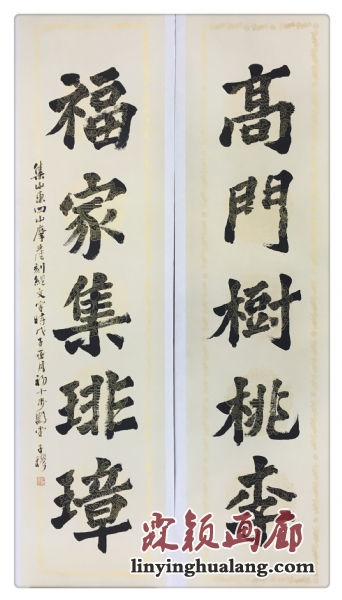 高門樹桃李
福家集琲璋
集山東四山摩崖刻經文字時戊子正月初十步
霖颖画廊
linyinghualang.com